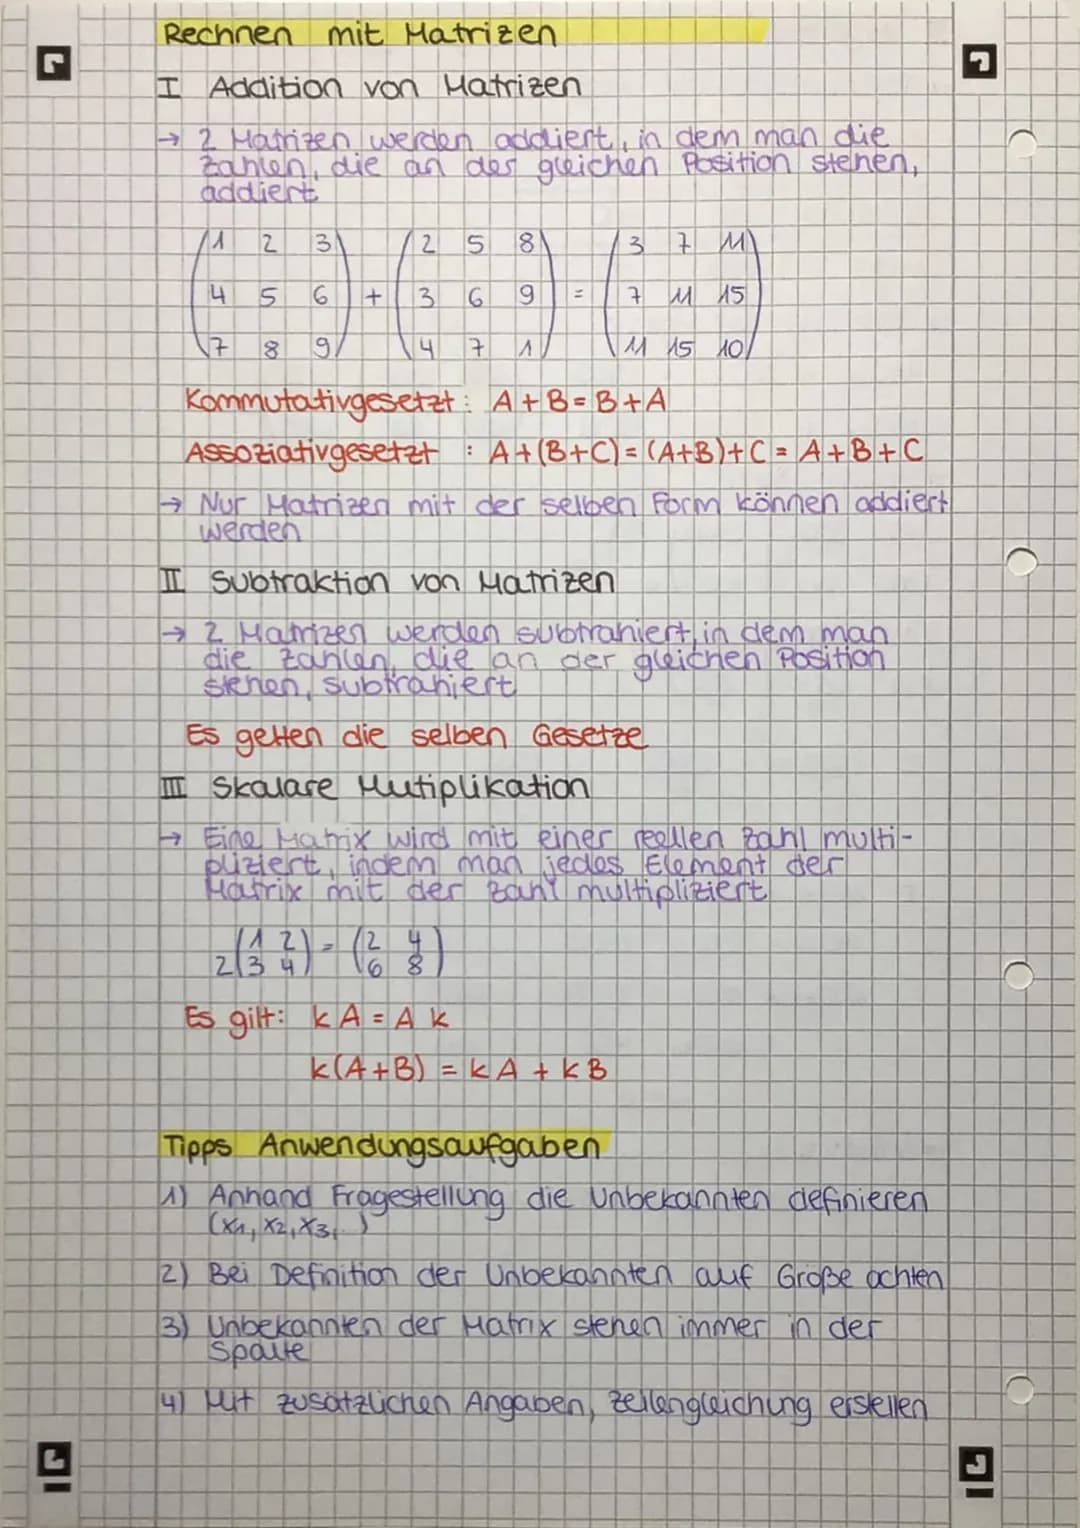 Rechnen mit Matrizen
I Addition von Matrizen
→ 2 Matrizen werden addiert, in dem man die
Zahlen, die an der gleichen Position stehen,
addiert
(1 2 3) (2 5 8) (3 7 11)
(4 5 6) + (3 6 9) = (7 11 15)
(7 8 9) (4 7 1) (11 15 10)
Kommutativgesetzt: A+B=B+A
Assoziativgesetzt : A+(B+C)=(A+B)+C = A+B+C
→ Nur Matrizen mit der selben Form können addiert
werden
II Subtraktion von Matrizen
→ 2 Matrizen werden subtrahiert, in dem man
die Zahlen, die an der gleichen Position
stehen, subtrahiert
Es gelten die selben Gesetze
III Skalare Mutiplikation
→ Eine Matrix wird mit einer reellen Zahl multi-
pliziert, indem man jedes Element der
Matrix mit der Zahl multipliziert
2(1 2) = (2 4)
(3 4) (6 8)
Es gilt: kA = A k
k(A+B) = kA + kB
Tipps Anwendungsaufgaben
1) Anhand Fragestellung die Unbekannten definieren
(x1, x2, x3,..)
2) Bei Definition der Unbekannten auf Größe achten
3) Unbekannten der Matrix stehen immer in der
Spalte
4) Mit zusätzlichen Angaben, Zeilengleichung erstellen